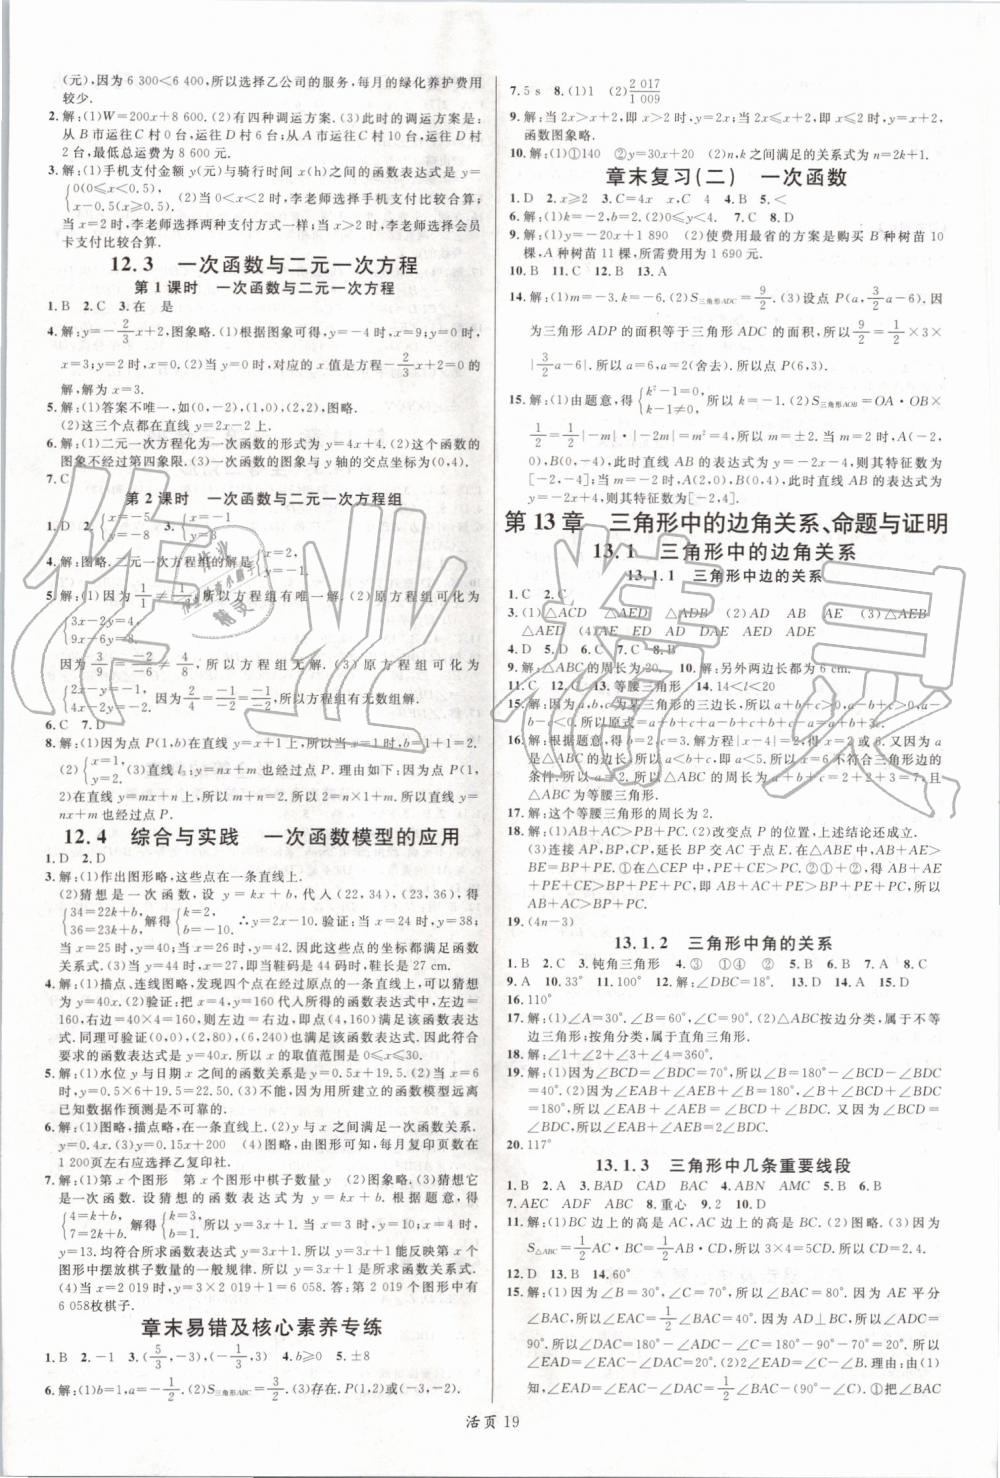 (元),因为 6 300<6 400,所以选择乙公司的服务,每月的绿化养护费用
较少.
2.解:(1)W=200x+8 600.(2)有四种调运方案.(3)此时的调运方案是:
从 B 市运往 C 村 0 台,运往 D 村 6 台;从 A 市运往 C 村 10 台,运往 D 村
2 台,最低总运费为 8 600 元.
3.解:(1)手机支付金额 y(元)与骑行时间 x(h)之间的函数表达式是 y=
{0(0≤x<0.5), x-0.5(x≥0.5). (2)当 0<x<2 时,李老师选择手机支付比较合算;
当 x=2 时,李老师选择两种支付方式一样;当 x>2 时,李老师选择会员
卡支付比较合算.
12.3 一次函数与二元一次方程
第 1 课时 一次函数与二元一次方程
1.B 2.C 3.在 是
4.解:y=-2/3x+2,图象略.(1)根据图象可得,y=-4 时,x=9;y=0 时,
x=3;y=2 时,x=0.(2)当 y=0 时,对应的 x 值是方程-2/3x+2=0 的
解,解为 x=3.
5.解:(1)答案不唯一,如(0,-2),(1,0),(2,2),图略.
(2)这三个点都在直线 y=2x-2 上.
6.解:(1)二元一次方程化为一次函数的形式为 y=4x+4.(2)这个函数的
图象不经过第四象限.(3)一次函数的图象与 y 轴的交点坐标为(0,4).
7.C
第 2 课时 一次函数与二元一次方程组
1.D 2.{x=-5 y=-8 3.{x=-1 y=2
4.解:图略.二元一次方程组的解是
5.解:(1)因为 1/1≠-1/1,所以方程组有唯一解.(2)原方程组可化为
{3x-2y=4, 9x-6y=8.
因为 3/9=-2/-6≠4/8,所以方程组无解.(3)原方程组可化为
{2x-y=1, 4x-2y=2. 因为 2/4=-1/-2=1/2,所以方程组有无数组解.
6.C 7.D
8.解:(1)因为点 P(1,b)在直线 y=x+1 上,所以当 x=1 时,b=1+1=2.
(2){x=1, y=2. (3)直线 l₃:y=nx+m 也经过点 P.理由如下:因为点 P(1,
2)在直线 y=mx+n 上,所以 m+n=2,所以 2=n×1+m,所以直线 y=
nx+m 也经过点 P.
12.4 综合与实践 一次函数模型的应用
1.D 2.D
3.解:(1)作出图形略,这些点在一条直线上.
(2)猜想是一次函数.设 y=kx+b,代入(22,34),(23,36),得
{34=22k+b, 36=23k+b, 解得{k=2, b=-10. ∴y=2x-10.验证:当 x=24 时,y=38;
当 x=25 时,y=40;当 x=27 时,y=44.因此这些点的坐标都满足函数
关系式.(3)当 y=44 时,x=27,即当鞋码是 44 码时,鞋长是 27 cm.
4.解:(1)描点、连线图略,发现四个点在经过原点的一条直线上,可以猜想
为 y=40x.(2)验证:把 x=4,y=160代入所得的函数表达式中,左边=
160,右边=40×4=160,左边=右边,即点(4,160)满足该函数表达
式.同理可验证(0,0),(2,80),(6,240)也满足该函数表达式.因此符合
要求的函数表达式是 y=40x.所以 x 的取值范围是 0≤x≤30.
5.解:(1)水位 y 与日期 x 之间的函数关系是 y=0.5x+19.5.(2)当 x=6
时,y=0.5×6+19.5=22.5.(3)不能,因为用所建立的函数模型远离
已知数据作预测是不可靠的.
6.解:(1)图略,描点略,在一条直线上.(2)y 与 x 之间满足一次函数关系.
y=0.4x.(3)y=0.15x+200 (4)图略,由图形可知,每月复印页数在
1 200页左右应选择乙复印社.
7.解:(1)第 x 个图形 第 x 个图形中棋子数量 y (2)图象略.(3)猜想它
是一次函数.设猜想的函数表达式为 y=kx+b.根据题意,得
{4=k+b, 7=2k+b, 解得{k=3, b=1. 所以 y=3x+1.验证:当 x=3 时,y=10;当 x=4 时,
y=13.均符合所求函数表达式 y=3x+1,所以 y=3x+1 能反映第 x 个图
形中摆放棋子数量的一般规律.所以 y=3x+1 是所求函数关系式.
(4)当 x=2 019 时,y=3×2 019+1=6 058.答:第 2 019 个图形中有
6 058枚棋子.
章末易错及核心素养专练
1.B 2.-1 3.(5/3,-3),(-1/3,3) 4.b≥0 5.±8
6.解:(1)b=1,a=-1/2.(2)S三角形ABC=3/2.(3)存在.P(1,2)或(-3,-2).
7.5 s 8.(1)1 (2)2 017/1 009
9.解:当 2x>x+2,即 x>2 时,y=2x;当 2x≤x+2,即 x≤2 时,y=x+2.
函数图象略.
10.解:(1)①140 ②y=30x+20 (2)n,k 之间满足的关系式为 n=2k+1.
章末复习(二) 一次函数
1.D 2.x≥2 3.C=4x x,C 4 4.B 5.<
6.解:(1)k=-2,b=2.(2)0≤y<4. 7.C 8.D
9.解:(1)y=-20x+1 890 (2)使费用最省的方案是购买 B 种树苗 10
棵,A 种树苗 11 棵,所需费用为 1 690 元.
10.B 11.C 12.B 13.A
14.解:(1)m=-3.(2)S三角形ADC=9/2.(3)设点 P(a,3/2a-6).因
为三角形 ADP 的面积等于三角形 ADC 的面积,所以 9/2=1/2×3×
|3/2a-6|.所以 a=6,a=2(舍去).所以点 P(6,3).
15.解:(1)由题意,得{k²-1=0, k-1≠0. 所以 k=-1.(2)S三角形AOB=OA·OB×
1/2=1/2|-m|·|-2m|=4.所以 m=±2.当 m=2 时,A(-2,
0),B(0,-4),此时直线 AB 的表达式为 y=-2x-4,则其特征数为
[-2,-4];当 m=-2 时,A(2,0),B(0,4),此时直线 AB 的表达式为
y=-2x+4,则其特征数为[-2,4].
第 13 章 三角形中的边角关系、命题与证明
13.1 三角形中的边角关系
13.1.1 三角形中边的关系
1.C 2.C
3.(1)△ACD △AED △ADB (2)AD AB AE (3)△AEB
△AED (4)AE ED AD DAE AED ADE
4.D 5.D 6.C 7.C 8.C
9.解:△ABC 的周长为 20. 10.解:另外两边长都为 6 cm.
11.C 12.C 13.等腰三角形 14.14<l<20
15.解:因为 a,b,c 为某三角形的三边长,所以 a+b+c>0,a-b+c>0,a
-b-c<0.所以原式=a+b+c+a-b+c-a+b+c=a+b+3c.
16.解:根据题意,得 b=2,c=3.解方程|x-4|=2,得 x=6 或 2.又因为 a
是△ABC 的边长,所以 a<b+c,即 a<5.所以 x=6 不符合三角形边的
条件.所以 a=2.所以△ABC 的周长为 a+b+c=2+2+3=7,△ABC
为等腰三角形.
17.解:这个等腰三角形的周长为 2.
18.解:(1)AB+AC>PB+PC.(2)改变点 P 的位置,上述结论还成立.
(3)连接 AP,BP,CP,延长 BP 交 AC 于点 E.在△ABE 中,AB+AE>
BE=BP+PE.①在△CEP 中,PE+CE>PC.②①+②,得 AB+AE+
PE+CE>BP+PE+PC,即 AB+AC+PE>BP+PE+PC,所以
AB+AC>BP+PC.
19.(4n-3)
13.1.2 三角形中角的关系
1.B 2.C 3.钝角三角形 4.③ ①④ ② 5.B 6.B 7.A 8.C
9.A 10.33° 11.100° 12.解:∠DBC=18°. 13.D 14.A 15.D
16.110°
17.解:(1)∠A=30°,∠B=60°,∠C=90°.(2)△ABC按边分类,属于不等
边三角形;按角分类,属于直角三角形.
18.解:∠1+∠2+∠3+∠4=360°.
19.解:(1)因为∠BCD=∠BDC=70°,所以∠B=180°-∠BCD-∠BDC
=40°.(2)因为∠EAB+∠AEB+∠B=180°,∠BCD+∠BDC+∠B
=180°,所以∠EAB+∠AEB=∠BCD+∠BDC.又因为∠BCD=
∠BDC,所以∠EAB+∠AEB=2∠BCD.
20.117°
13.1.3 三角形中几条重要线段
1.B 2.A 3.BAD CAD BAC 4.ABN AMC 5.B 6.B
7.AEC ADF ABC 8.重心 9.2 10.D
11.解:(1)BC 边上的高是 AC,AC 边上的高是 BC.(2)图略.(3)因为
S△ABC=1/2AC·BC=1/2AB·CD,所以 3×4=5CD.所以 CD=2.4.
12.D 13.B 14.60°
15.解:(1)因为∠B=30°,∠C=70°,所以∠BAC=80°.因为 AE 平分
∠BAC,所以∠EAC=1/2∠BAC=40°.因为 AD⊥BC,所以∠ADC
=90°.又因为∠C=70°,所以∠DAC=180°-90°-70°=20°.所以
∠EAD=∠EAC-∠DAC=20°.(2)∠C-∠B=2∠EAD.理由:由(1)
知,∠EAD=∠EAC-∠DAC=1/2∠BAC-(90°-∠C).①把∠BAC
活页 19